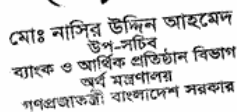 মোঃ নাসির উদ্দিন আহমেদ
উপ-সচিব
ব্যাংক ও আর্থিক প্রতিষ্ঠান বিভাগ
অর্থ মন্ত্রণালয়
গণপ্রজাতন্ত্রী বাংলাদেশ সরকার